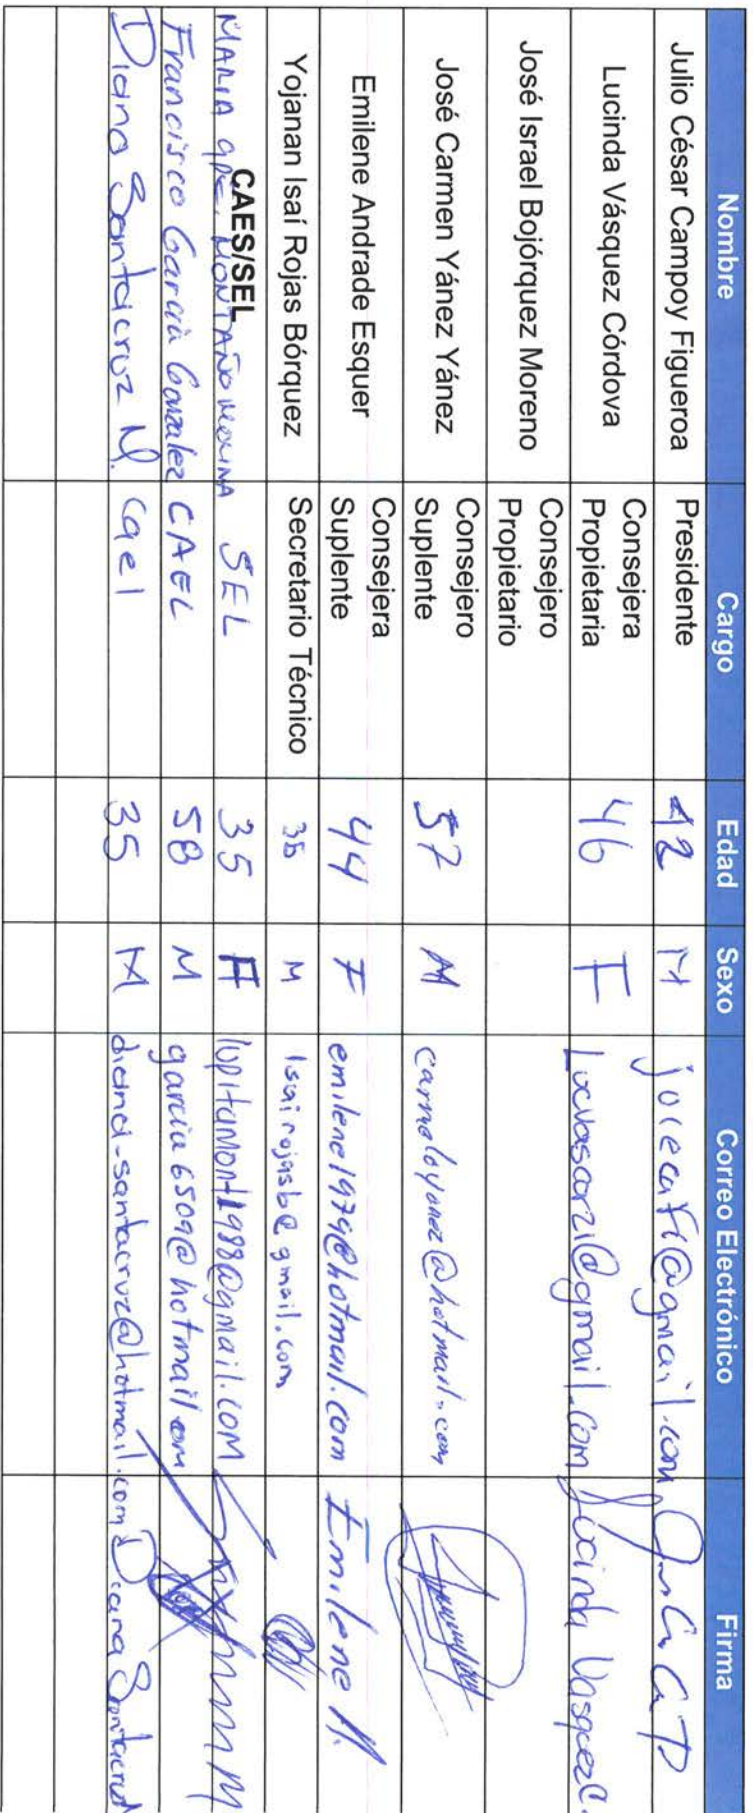 Nombre Cargo Edad Sexo Correo Electrónico Firma
Julio César Campoy Figueroa Presidente 42 M jocecafi@gmail.com
Lucinda Vásquez Córdova Consejera Propietaria 46 F Lucvascorzi@gmail.com Lucinda Vasquez C.
José Israel Bojórquez Moreno Consejero Propietario
José Carmen Yánez Yánez Consejero Suplente 57 M carmeloyanez@hotmail.com
Emilene Andrade Esquer Consejera Suplente 44 F emilene1979@hotmail.com Emilene A.
Yojanan Isaí Rojas Bórquez Secretario Técnico M Isairojasb@gmail.com
CAES/SEL
MARIA GPE. MONTAÑO MOLINA SEL 35 F lupitamont1988@gmail.com
Francisco García Gonzalez CAEL 58 M garcia6509@hotmail.com
Diana Santacruz N. Cael 35 M diana-santacruz@hotmail.com Diana Santacruz